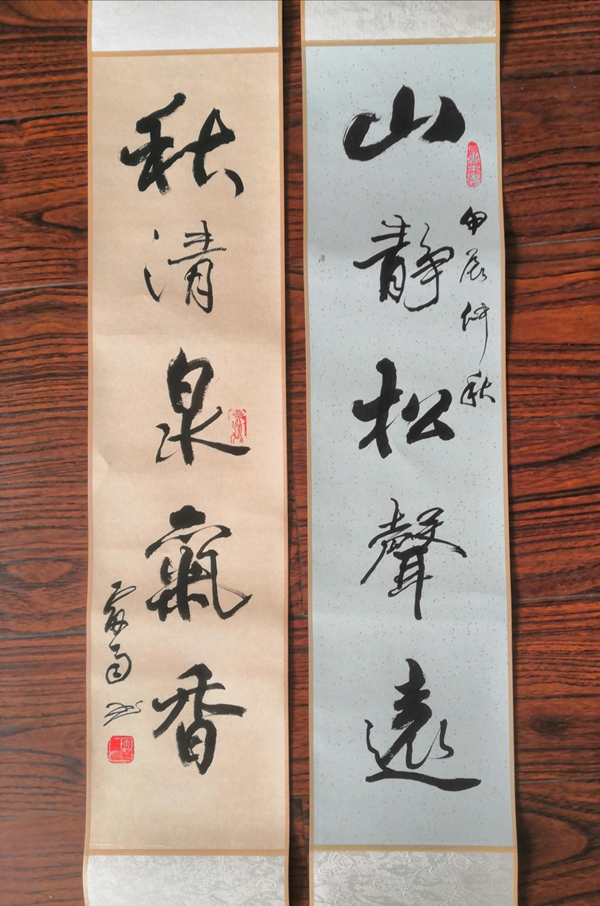 山靜松聲遠
甲辰仲秋
秋清泉氣香